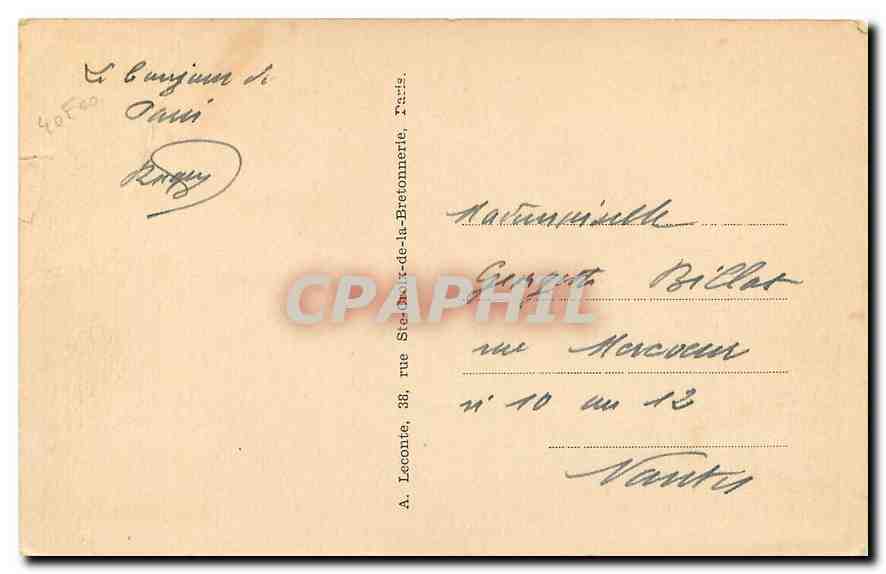 Le bonjour de
Paris
40F00
A. Leconte, 38, rue Ste-Croix-de-la-Bretonnerie, Paris.
Mademoiselle
Georgette Billot
rue Mercoeur
n° 10 ou 12
Nantes
CPAPHIL